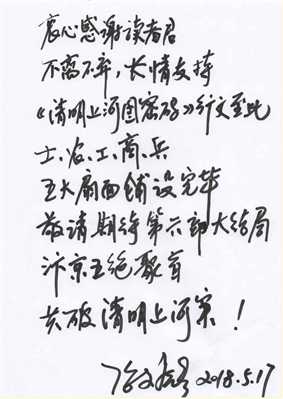 衷心感谢读者君
不离不弃，长情支持
《清明上河图密码》行文至此
士、农、工、商、兵
五大扇面铺设完毕
敬请期待第六部大结局
汴京五绝聚首
共破清明上河案！
冶文彪 2018.5.17